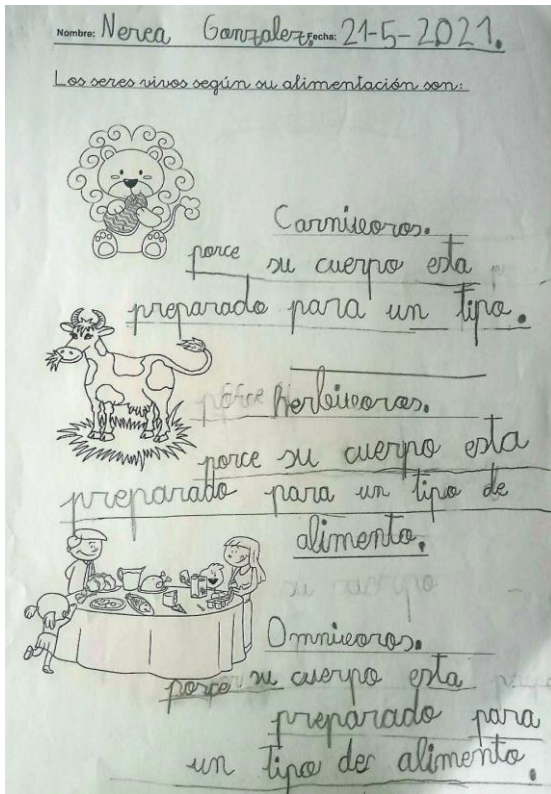 Nombre: Nerea Gonzalez. Fecha: 21-5-2021.
Los seres vivos según su alimentación son:
Carniveoros.
porce su cuerpo esta
preparado para un tipo.
porce Herbiveoros.
porce su cuerpo esta
preparado para un tipo de
alimento.
su cuerpo
Omniveoros.
porce su cuerpo esta
preparado para
un tipo de alimento.